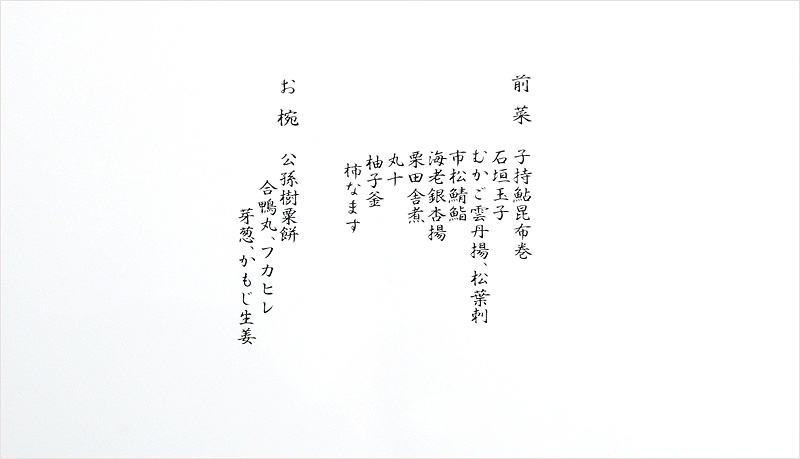 前菜
子持鮎昆布巻
石垣玉子
むかご雲丹揚、松葉刺
市松鯖鮨
海老銀杏揚
栗田舎煮
丸十
柚子釜
柿なます
お椀
公孫樹粟餅
合鴨丸、フカヒレ
芽葱、かもじ生姜